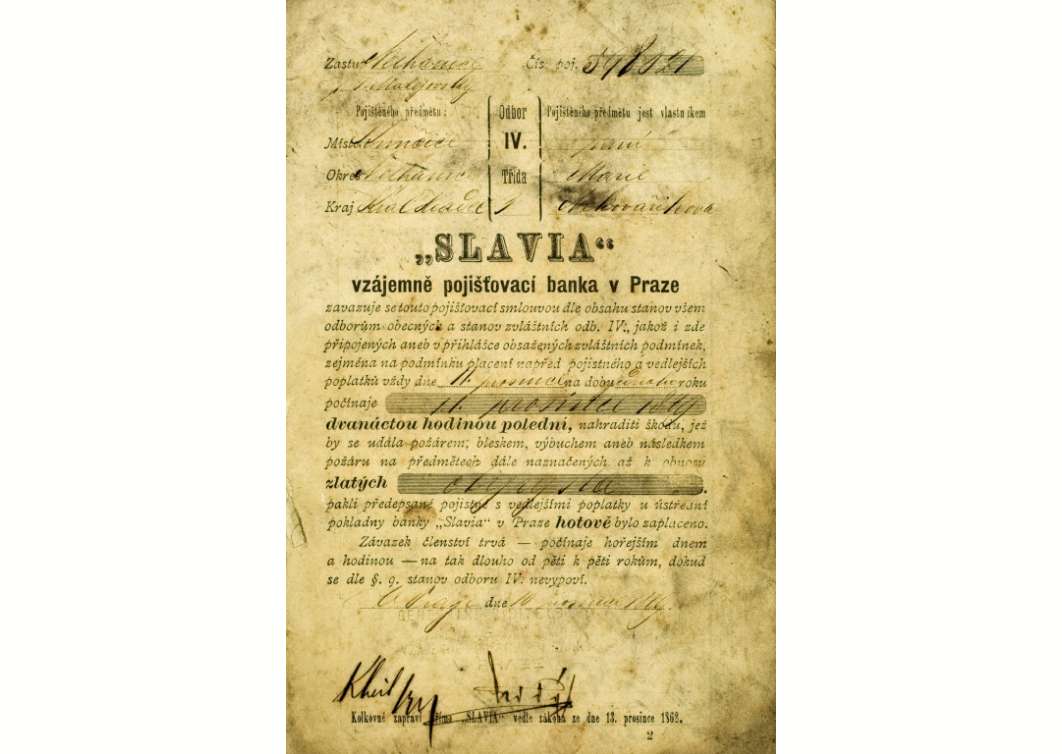 Nechanice Čís. poj. 598921
Pojištěného předmětu: Odbor Pojištěného předmětu jest vlastníkem
IV. paní
Okres Nechanice Třída Marie
Kraj Král. Hradec 1
„SLAVIA“
vzájemně pojišťovací banka v Praze
zavazuje se touto pojišťovací smlouvou dle obsahu stanov všem
odborům obecných a stanov zvláštních odb. IV., jakož i zde
připojených aneb v přihlášce obsažených zvláštních podmínek,
zejména na podmínku placení napřed pojistného a vedlejších
poplatků vždy dne 11. prosince na dobu roku
počínaje 11. prosince
dvanáctou hodinou polední, nahraditi škodu, jež
by se udála požárem, bleskem, výbuchem aneb následkem
požáru na předmětech dále naznačených až k obnosu
zlatých
pakli předepsané pojistné s vedlejšími poplatky u ústřední
pokladny banky „Slavia“ v Praze hotově bylo zaplaceno.
Závazek členství trvá — počínaje hořejším dnem
a hodinou — na tak dlouho od pěti k pěti rokům, dokud
se dle §. 9. stanov odboru IV. nevypoví.
V Praze dne 10. prosince
Kolkovné zapraví přímo „SLAVIA“ vedle zákona ze dne 13. prosince 1862.
2